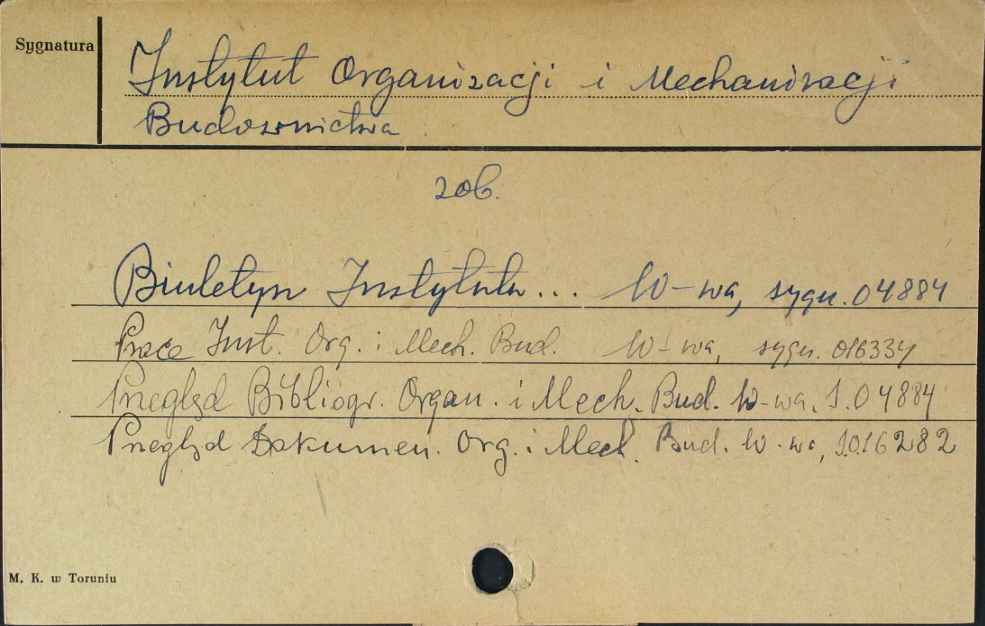 Sygnatura
Instytut Organizacji i Mechanizacji
Budownictwa
zob.
Biuletyn Instytutu... W-wa, sygn. 04884
Prace Inst. Org. i Mech. Bud. W-wa, sygn. 016334
Przegląd Bibliogr. Organ. i Mech. Bud. W-wa, S.04884
Przegląd Dokumen. Org. i Mech. Bud. W-wa, S.016282
M. K. w Toruniu